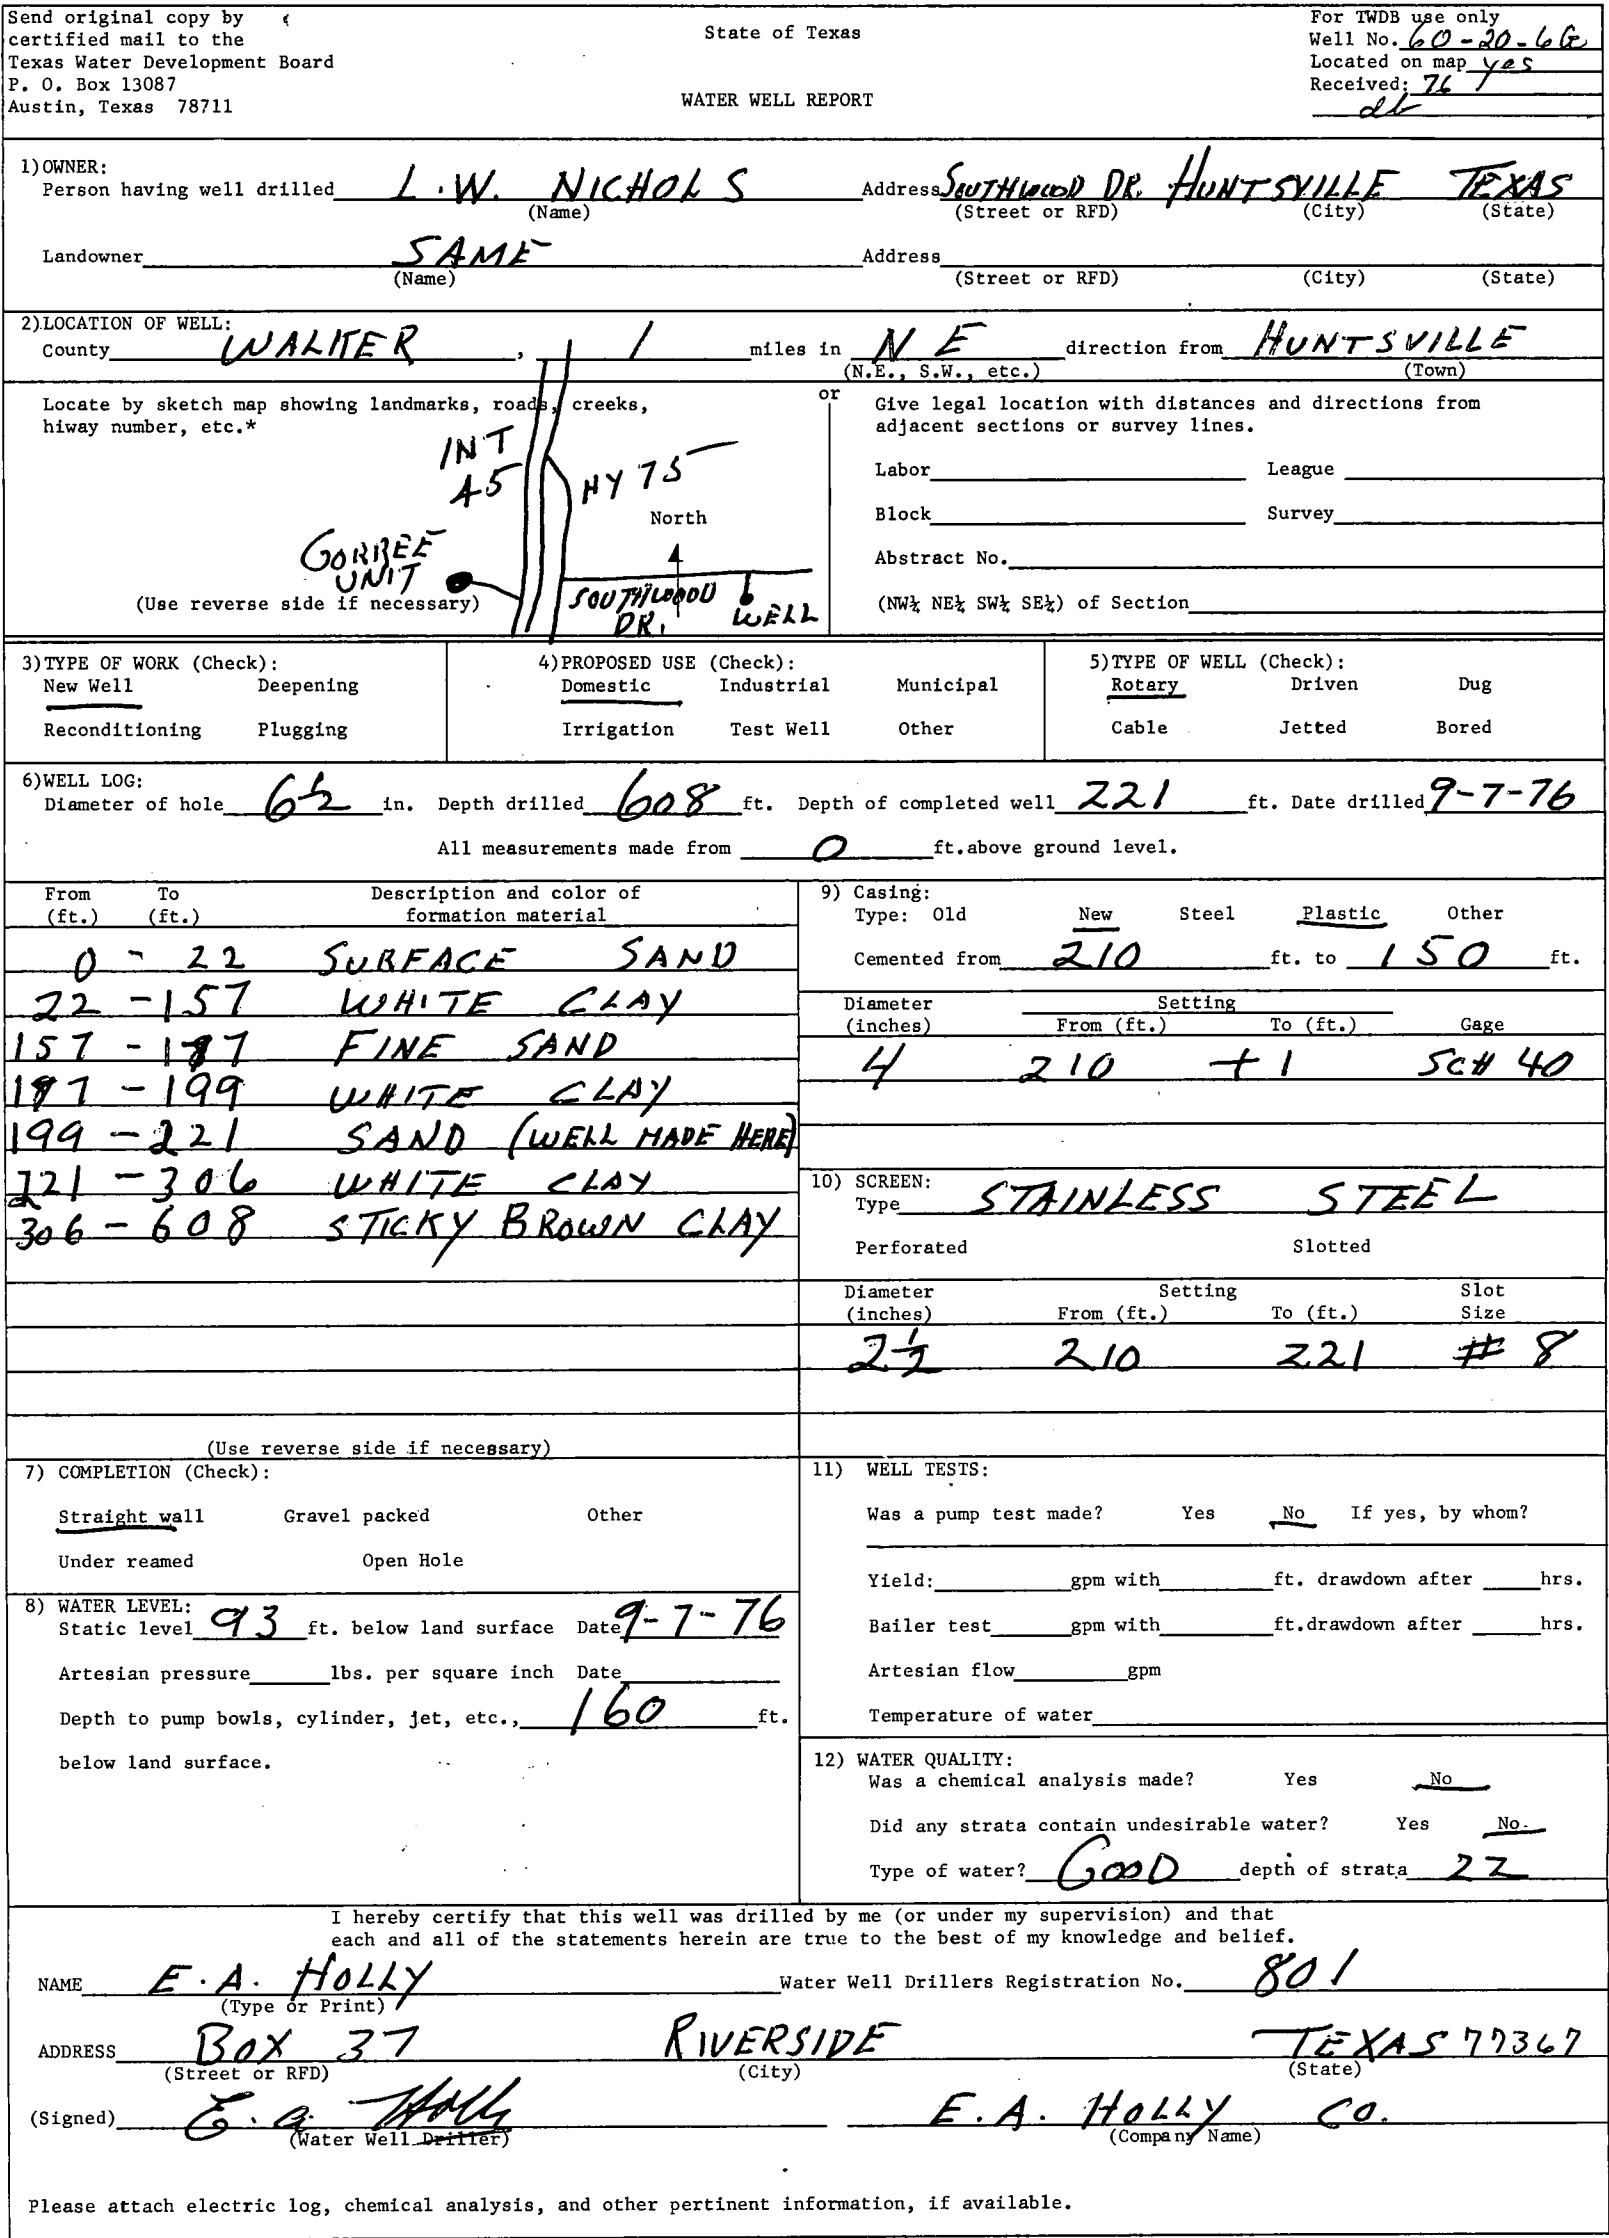 Send original copy by
certified mail to the
Texas Water Development Board
P. O. Box 13087
Austin, Texas 78711
State of Texas
WATER WELL REPORT
For TWDB use only
Well No. 60-20-6G
Located on map yes
Received: 76
db
1) OWNER:
Person having well drilled L.W. NICHOLS Address SOUTHWOOD DR. HUNTSVILLE TEXAS
(Name) (Street or RFD) (City) (State)
Landowner SAME Address
(Name) (Street or RFD) (City) (State)
2) LOCATION OF WELL:
County WALKER, 1 miles in N E direction from HUNTSVILLE
(N.E., S.W., etc.) (Town)
Locate by sketch map showing landmarks, roads, creeks,
hiway number, etc.*
INT
45
HY 75
North
GORREE
UNIT
SOUTHWOOD
DR.
WELL
(Use reverse side if necessary)
or
Give legal location with distances and directions from
adjacent sections or survey lines.
Labor League
Block Survey
Abstract No.
(NW¼ NE¼ SW¼ SE¼) of Section
3) TYPE OF WORK (Check):
New Well Deepening
Reconditioning Plugging
4) PROPOSED USE (Check):
Domestic Industrial Municipal
Irrigation Test Well Other
5) TYPE OF WELL (Check):
Rotary Driven Dug
Cable Jetted Bored
6) WELL LOG:
Diameter of hole 6½ in. Depth drilled 608 ft. Depth of completed well 221 ft. Date drilled 9-7-76
All measurements made from 0 ft.above ground level.
From To Description and color of
(ft.) (ft.) formation material
0 - 22 SURFACE SAND
22 - 157 WHITE CLAY
157 - 187 FINE SAND
187 - 199 WHITE CLAY
199 - 221 SAND (WELL MADE HERE)
221 - 306 WHITE CLAY
306 - 608 STICKY BROWN CLAY
(Use reverse side if necessary)
9) Casing:
Type: Old New Steel Plastic Other
Cemented from 210 ft. to 150 ft.
Diameter Setting
(inches) From (ft.) To (ft.) Gage
4 210 +1 SCH 40
10) SCREEN:
Type STAINLESS STEEL
Perforated Slotted
Diameter Setting Slot
(inches) From (ft.) To (ft.) Size
2½ 210 221 # 8
7) COMPLETION (Check):
Straight wall Gravel packed Other
Under reamed Open Hole
8) WATER LEVEL:
Static level 93 ft. below land surface Date 9-7-76
Artesian pressure lbs. per square inch Date
Depth to pump bowls, cylinder, jet, etc., 160 ft.
below land surface.
11) WELL TESTS:
Was a pump test made? Yes No If yes, by whom?
Yield: gpm with ft. drawdown after hrs.
Bailer test gpm with ft.drawdown after hrs.
Artesian flow gpm
Temperature of water
12) WATER QUALITY:
Was a chemical analysis made? Yes No
Did any strata contain undesirable water? Yes No
Type of water? GOOD depth of strata 22
I hereby certify that this well was drilled by me (or under my supervision) and that
each and all of the statements herein are true to the best of my knowledge and belief.
NAME E.A. HOLLY Water Well Drillers Registration No. 801
(Type or Print)
ADDRESS BOX 37 RIVERSIDE TEXAS 77367
(Street or RFD) (City) (State)
(Signed) E. A. Holly E.A. HOLLY CO.
(Water Well Driller) (Company Name)
Please attach electric log, chemical analysis, and other pertinent information, if available.